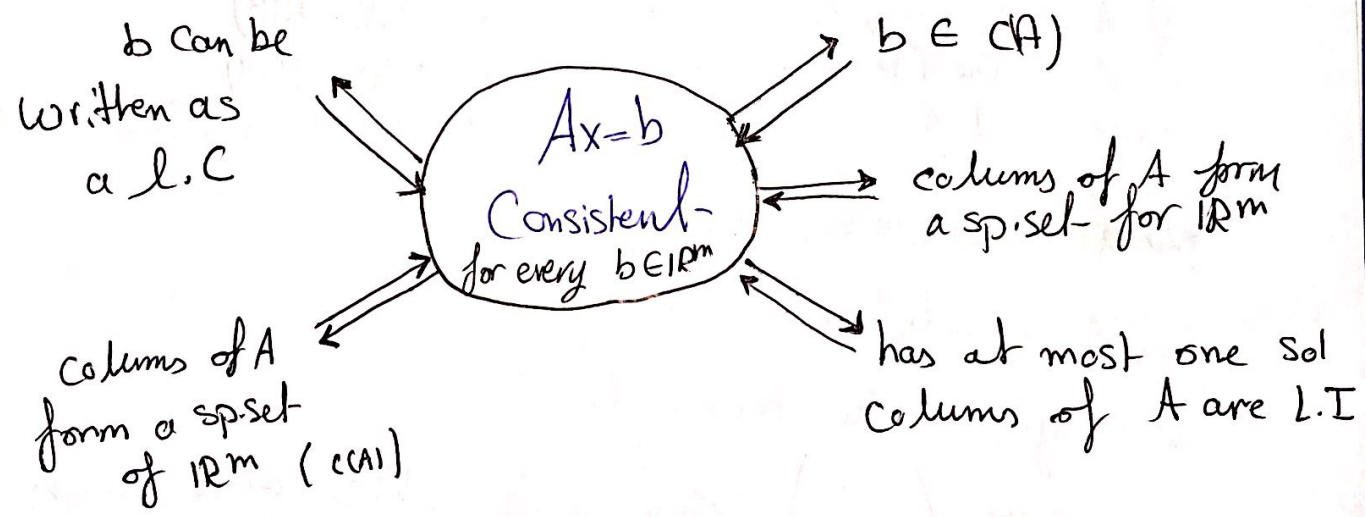 b can be
written as
a l.C
Ax=b
Consistent
for every b∈ℝᵐ
b ∈ C(A)
colums of A form
a sp.set for ℝᵐ
has at most one sol
colums of A are L.I
colums of A
form a sp.set
of ℝᵐ (C(A))